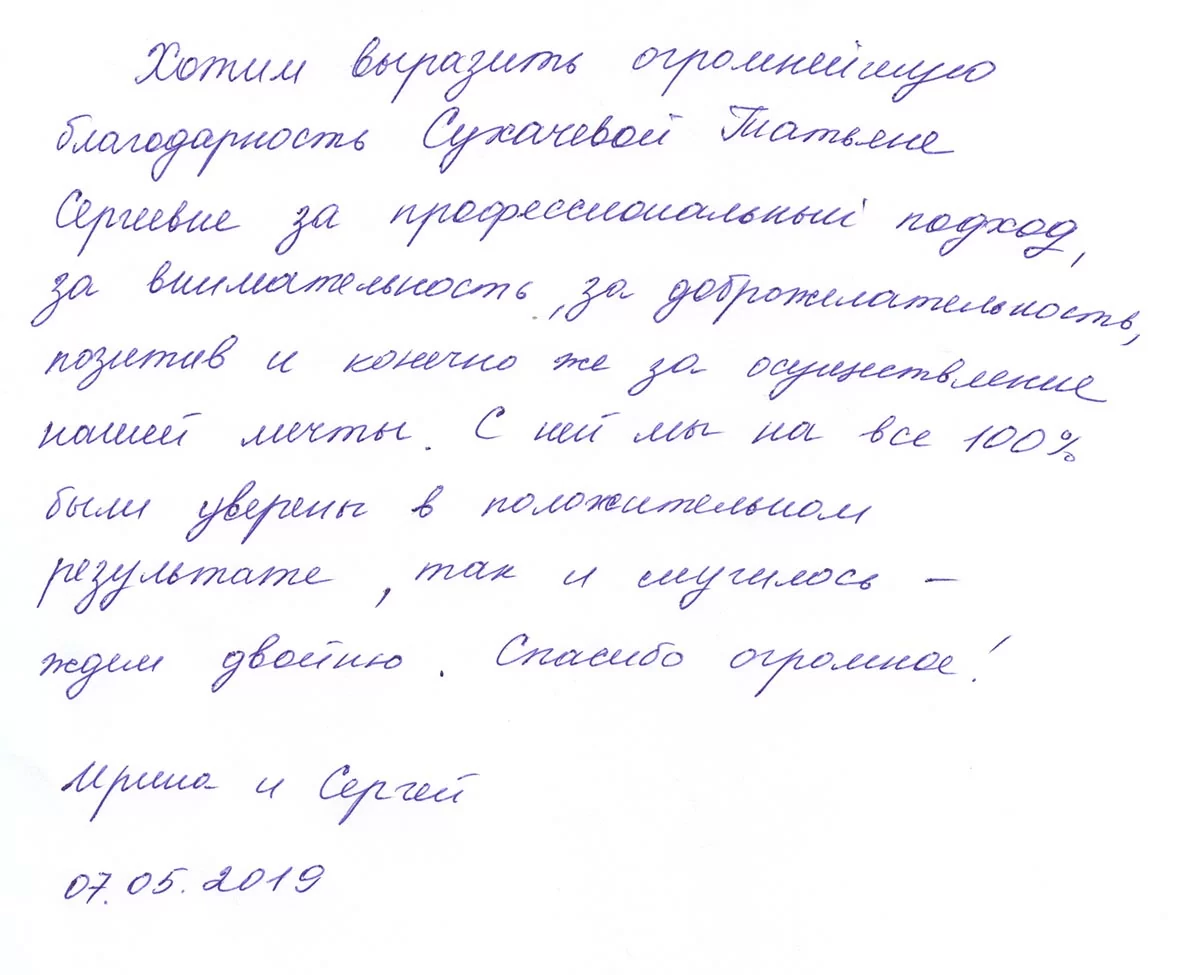 Хотим выразить огромнейшую
благодарность Сухачевой Татьяне
Сергеевне за профессиональный подход,
за внимательность, за доброжелательность,
позитив и конечно же за осуществление
нашей мечты. С ней мы на все 100%
были уверены в положительном
результате, так и случилось –
ждем двойню. Спасибо огромное!
Ирина и Сергей
07.05.2019